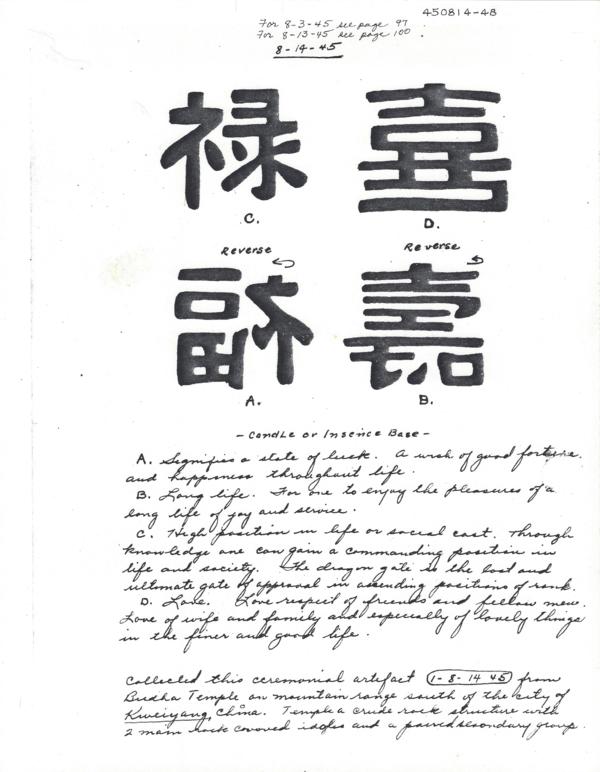 450814-4B
For 8-3-45 see page 97
For 8-13-45 see page 100.
8-14-45
禄 喜
C. D.
Reverse Reverse
福 壽
A. B.
- Candle or Insence Base -
A. Signifies a state of luck. A wish of good fortune.
and happiness throughout life.
B. Long life. For one to enjoy the pleasures of a
long life of joy and service.
C. High position in life or social cast. Through
knowledge one can gain a commanding position in
life and society. The dragon gate is the last and
ultimate gate of approval in ascending positions of rank.
D. Love. Love respect of friends and fellow men.
Love of wife and family and especially of lovely things
in the finer and good life.
Collected this ceremonial artefact 1-8-14 45 from
Budha Temple on mountain range south of the city of
Kweiyang, China. Temple a crude rock structure with
2 main rock covered and a paired secondary group.